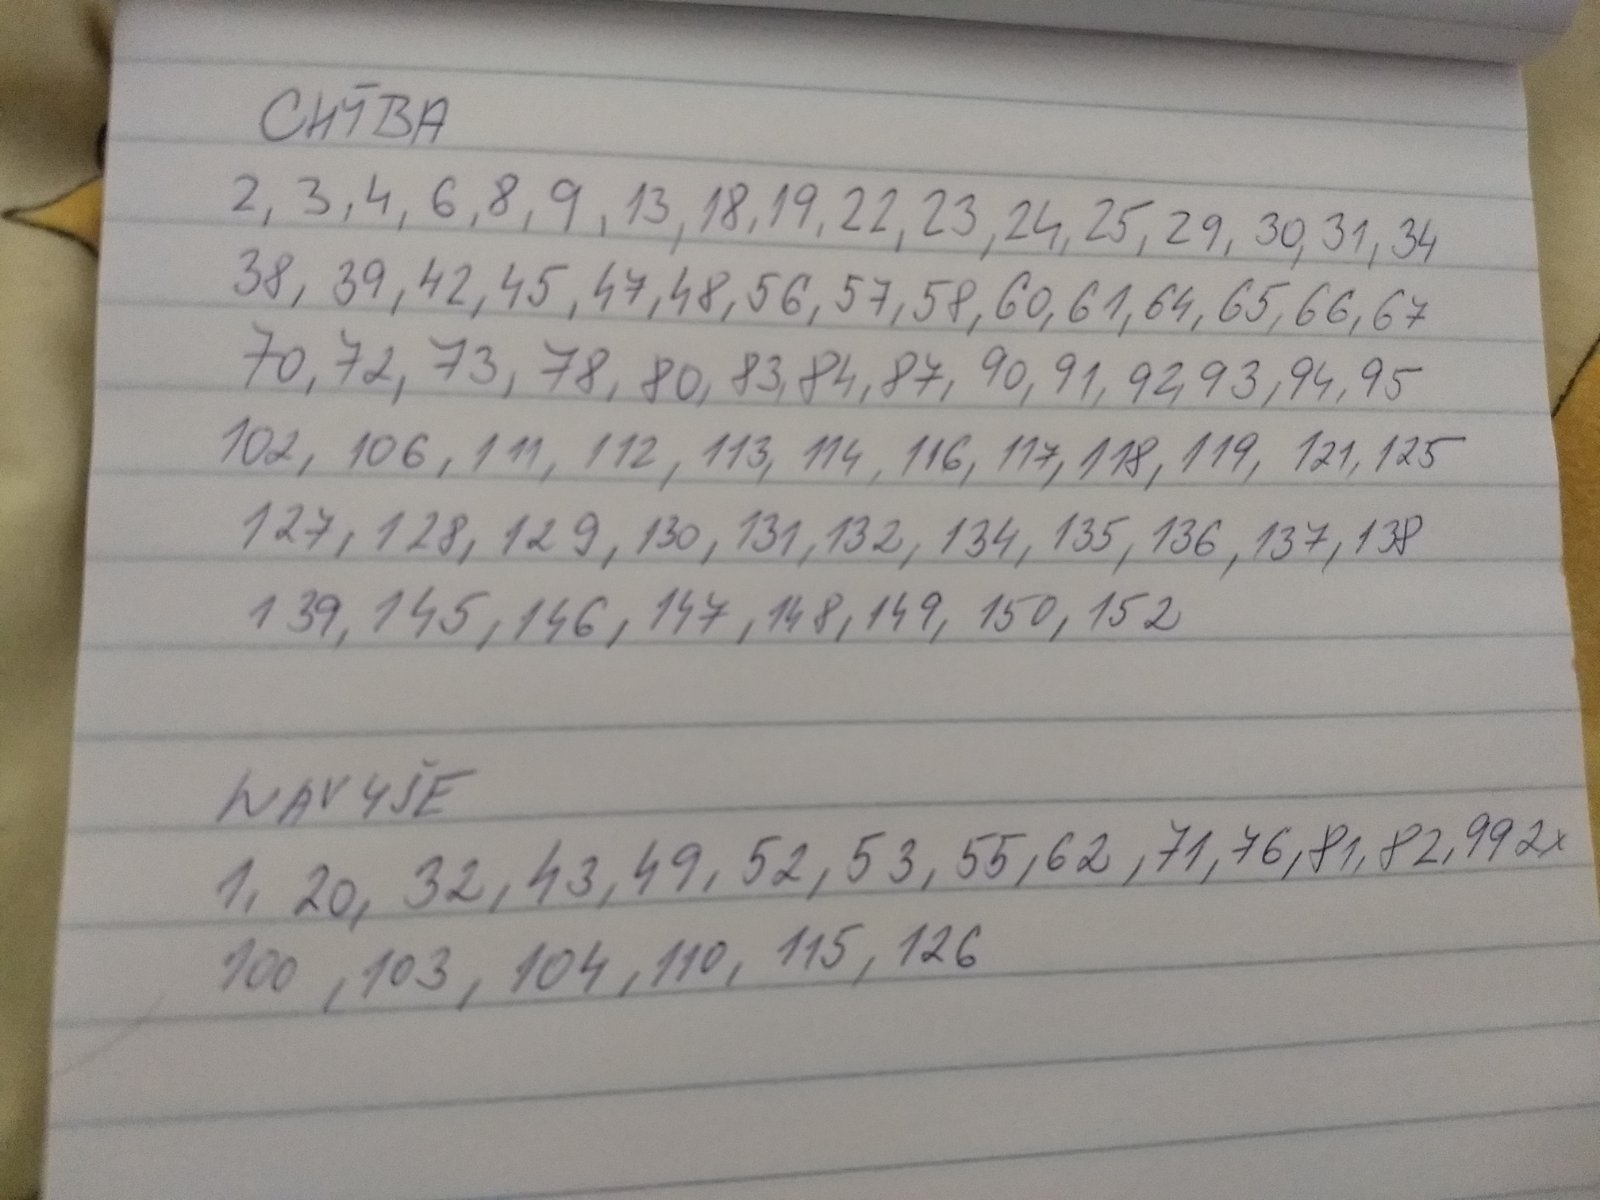 CHÝBA
2, 3, 4, 6, 8, 9, 13, 18, 19, 22, 23, 24, 25, 29, 30, 31, 34
38, 39, 42, 45, 47, 48, 56, 57, 58, 60, 61, 64, 65, 66, 67
70, 72, 73, 78, 80, 83, 84, 87, 90, 91, 92, 93, 94, 95
102, 106, 111, 112, 113, 114, 116, 117, 118, 119, 121, 125
127, 128, 129, 130, 131, 132, 134, 135, 136, 137, 138
139, 145, 146, 147, 148, 149, 150, 152
NAVYŠE
1, 20, 32, 43, 49, 52, 53, 55, 62, 71, 76, 81, 82, 99 2x
100, 103, 104, 110, 115, 126